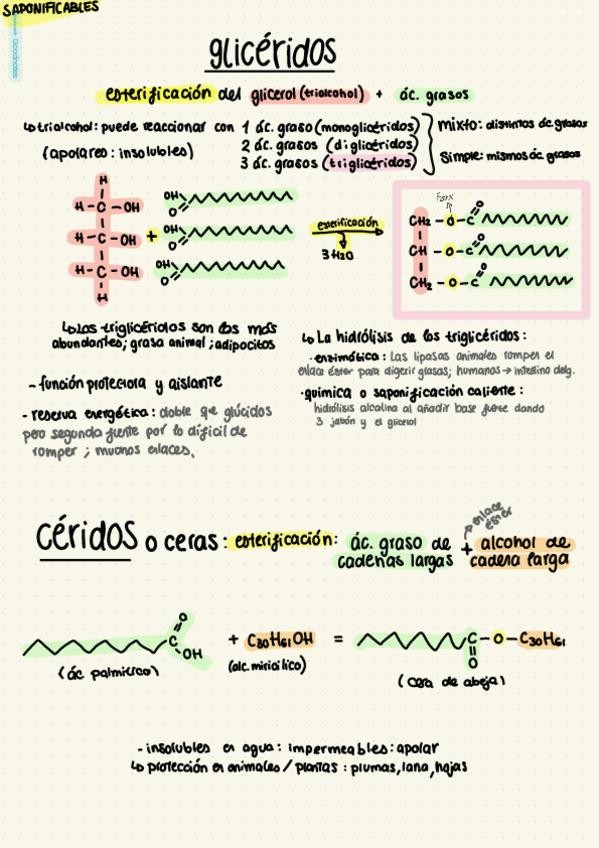 SAPONIFICABLES
Goodnotes
glicéridos
esterificación del glicerol (trialcohol) + ác. grasos
↳ trialcohol: puede reaccionar con 1 ác. graso (monoglicéridos)
2 ác. grasos (diglicéridos)
3 ác. grasos (triglicéridos)
mixto: distintos ác. grasos
simple: mismos ác. grasos
(apolares: insolubles)
H
H-C-OH
H-C-OH
H-C-OH
H
+
OH
O
OH
O
OH
O
esterificación
3 H2O
CH2-O-C
O
CH-O-C
O
CH2-O-C
O
↳ Los triglicéridos son los más
abundantes; grasa animal; adipocitos
- función protectora y aislante
- reserva energética: doble que glúcidos
pero segunda fuente por lo difícil de
romper; muchos enlaces.
↳ La hidrólisis de los triglicéridos:
· enzimática: Las lipasas animales rompen el
enlace éster para digerir grasas; humanos → intestino delg.
· química o saponificación caliente:
hidrólisis alcalina al añadir base fuerte dando
3 jabón y el glicerol
céridos o ceras: esterificación: ác. graso de cadenas largas + alcohol de cadena larga
enlace éster
C
O
OH
(ác palmítico)
+ C30H61OH
(alc. miricílico)
=
C-O-C30H61
O
(cera de abeja)
- insolubles en agua: impermeables: apolar
↳ protección en animales / plantas: plumas, lana, hojas